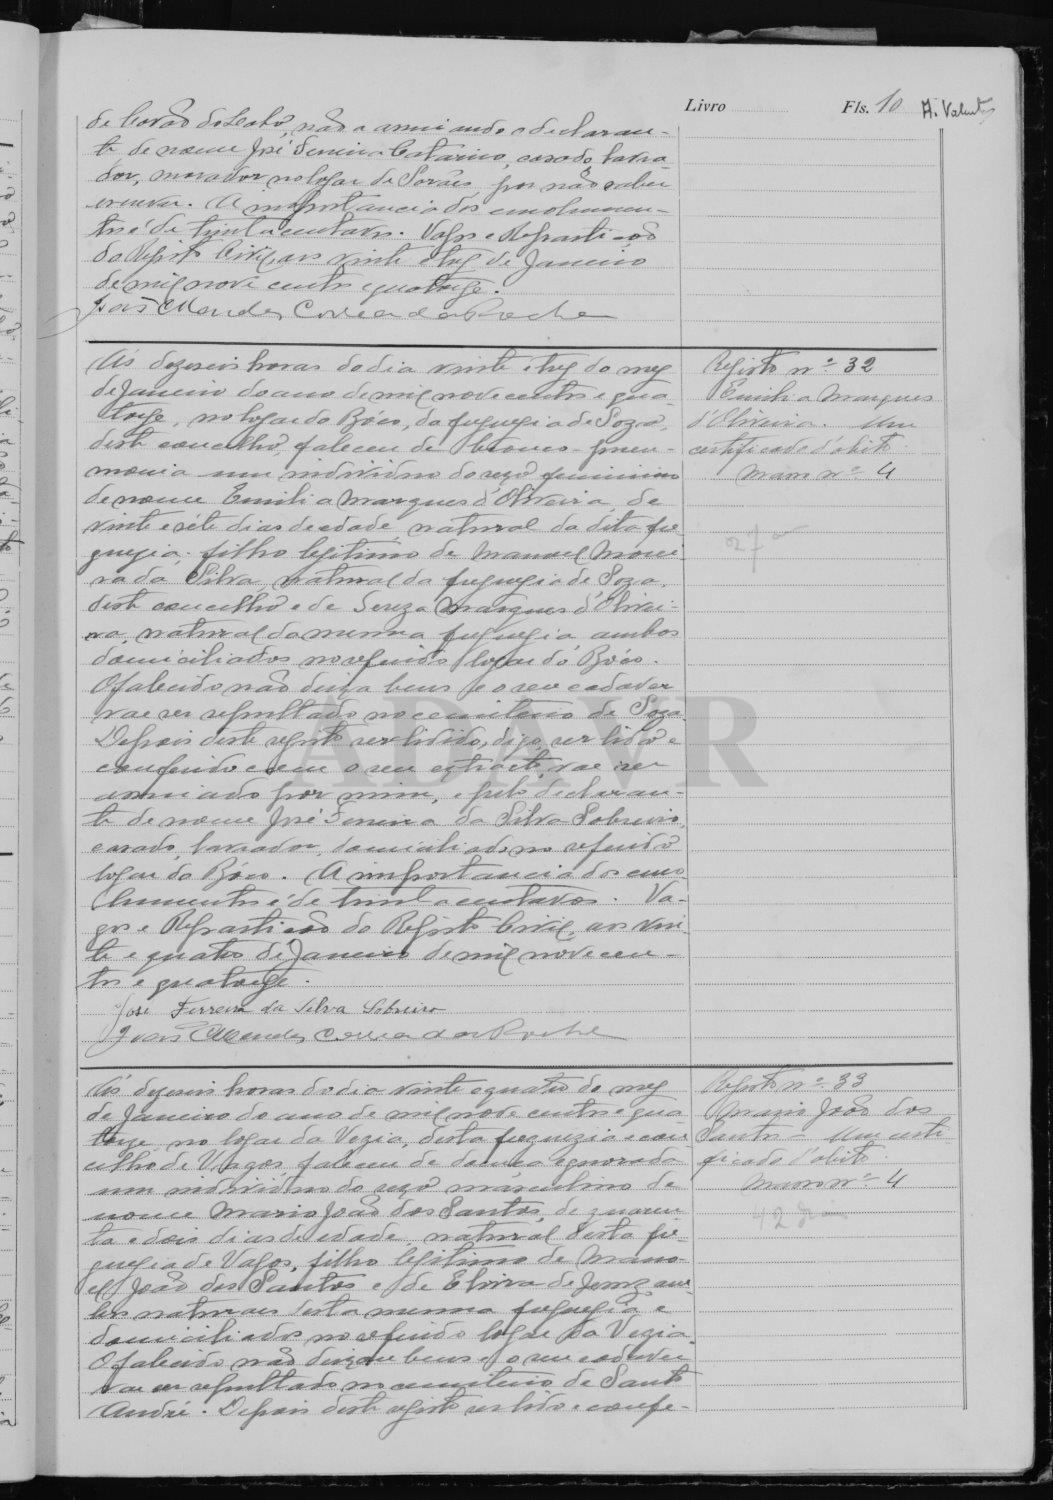 Livro Fls. 10 A. Valente
não assinando o declaran-
te de nome José Ferreira Catarino, casado, lavra
dor, morador no logar de por não saber
escrever. A importancia dos emolumen-
tos é de trinta centavos. Vagos e Repartição
do Registo Civil, aos vinte e tres de Janeiro
de mil nove centos e quatorze.
João Mendes Correia da Rocha
Ás dezeseis horas do dia vinte e tres do mez
de Janeiro do ano de mil nove centos e qua
torze, no logar do Bôco, da freguezia de Soza,
deste concelho, faleceu de bronco-pneu-
monia um individuo do sexo feminino
de nome Emilia Marques d'Oliveira, de
vinte e sete dias de edade, natural da dita fre
guezia, filho legitimo de Manuel
da Silva, natural da freguezia de Soza,
deste concelho e de Tereza Marques d'Olivei-
ra, natural da mesma freguezia, ambos
domiciliados no referido logar do Bôco.
O falecido não deixa bens e o seu cadaver
vae ser sepultado no cemiterio de Soza.
Depois deste registo ser lidido, digo, ser lido e
conferido com o seu extracto, vae ser
assinado por mim, e pelo declaran-
te de nome José Ferreira da Silva Sobreiro,
casado, lavrador, domiciliado no referido
logar do Bôco. A importancia dos emo
lumentos é de trinta centavos. Va-
gos e Repartição do Registo Civil, aos vin-
te e quatro de Janeiro de mil nove cen-
tos e quatorze.
José Ferreira da Silva Sobreiro
João Mendes Correia da Rocha
Registo nº 32
Emilia Marques
d'Oliveira. Um
certificado d'obito.
Maço nº 4
27 d
Ás dezeseis horas do dia vinte e quatro do mez
de Janeiro do ano de mil nove centos e qua
torze, no logar da Vezia, desta freguezia e con
celho de Vagos, faleceu de doença ignorada
um individuo do sexo masculino de
nome Mario João dos Santos, de quaren
ta e dois dias de edade, natural desta fre
guezia de Vagos, filho legitimo de Mano-
el João dos Santos e de Elvira de Jesus, am-
bos naturaes desta mesma freguezia e
domiciliados no referido logar da Vezia.
O falecido não deixou bens e o seu cadaver
vae ser sepultado no cemiterio de Santo
André. Depois deste registo ser lido e confe-
Registo nº 33
Mario João dos
Santos - Um certi-
ficado d'obito.
Maço nº 4
42 d
ADAVR